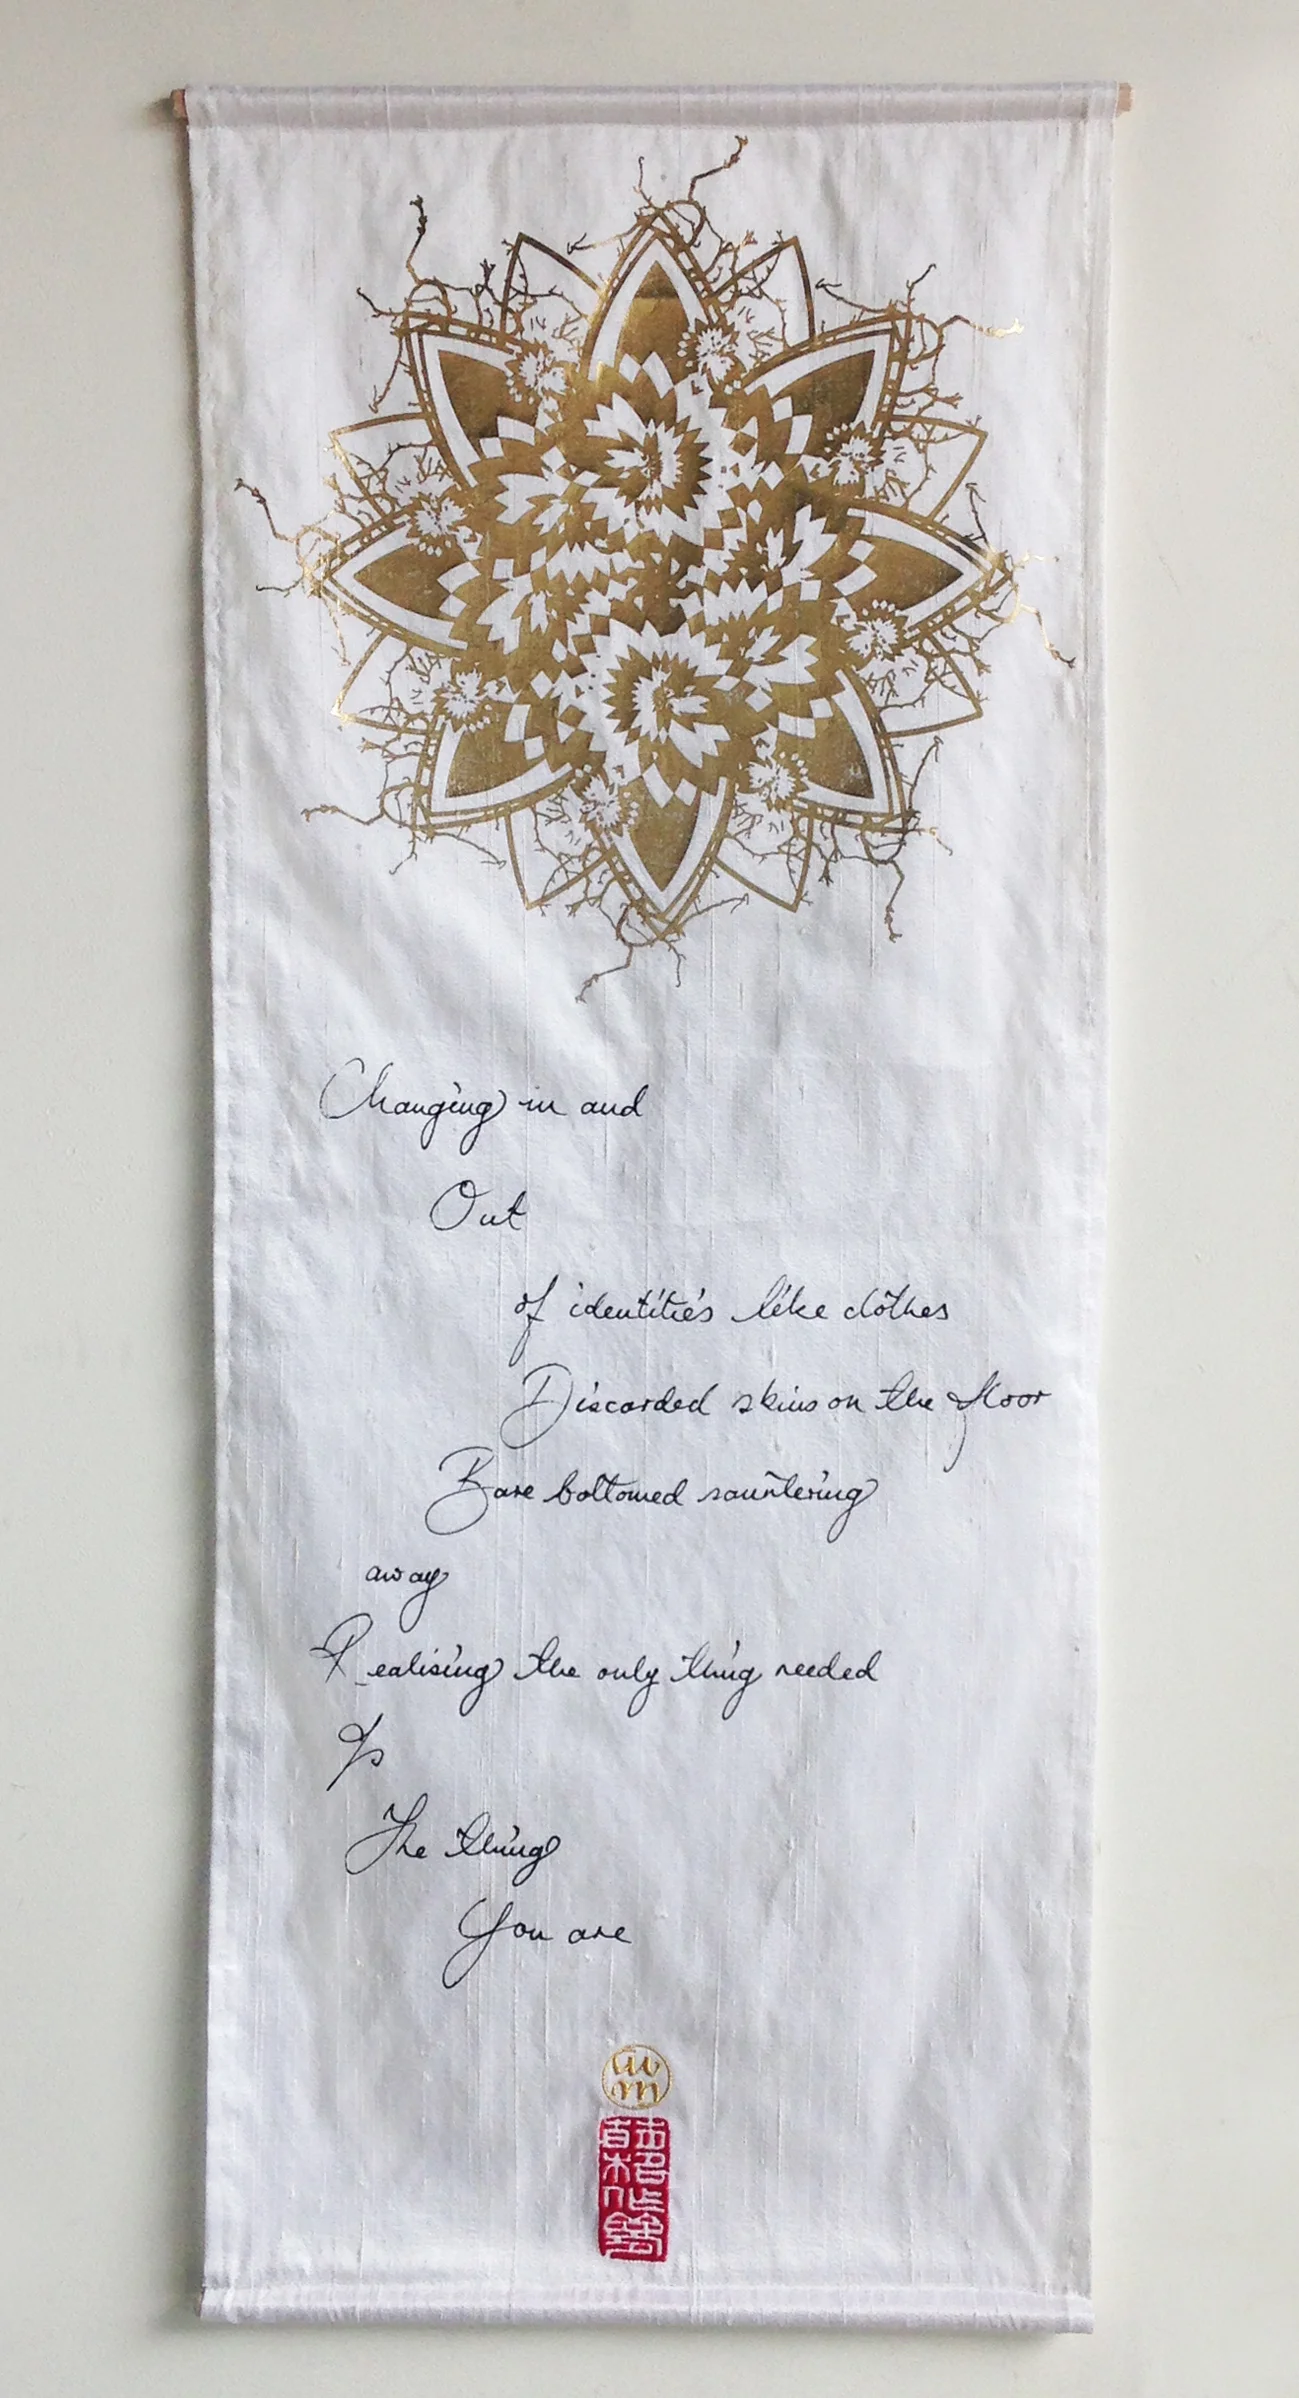 Changing in and
Out
of identities like clothes
Discarded skins on the floor
Bare bottomed sauntering
away
Realising the only thing needed
Is
The thing
You are